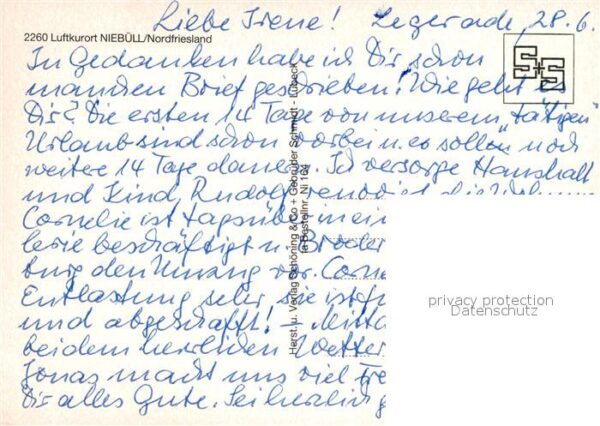 Liebe Irene! Legerade, 28.6.
2260 Luftkurort NIEBÜLL/Nordfriesland
In Gedanken habe ich Dir schon
manchen Brief geschrieben! Wie geht es
Dir? Die ersten 14 Tage von unserem "tätigen"
Urlaub sind schon vorbei u. es sollen noch
weitere 14 Tage dauern. Ich versorge Haushalt
und Kind, Rudolf renoviert die
Cornelie ist tagsüber in ein
lerie beschäftigt u.
burg den Umzug vor. Corne
Entlastung sehr, sie ist
und abgeschafft!
bei dem herrlichen Wetter
Jonas macht uns viel Fre
Dir alles Gute. Sei herzlich g
S+S
Herst. u. Verlag Schöning & Co + Gebrüder Schmidt - Lübeck
Bestellnr. Ni 164
privacy protection
Datenschutz